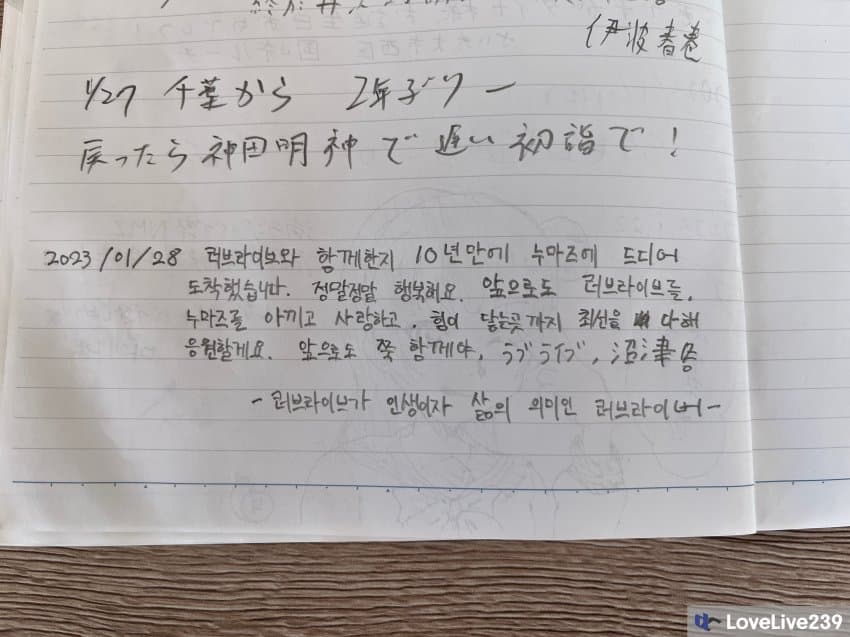 伊波春巻
1/27 千葉から 2年ぶりー
戻ったら神田明神で遅い初詣で!
2023/01/28 러브라이브와 함께한지 10년만에 누마즈에 드디어
도착했습니다. 정말정말 행복해요. 앞으로도 러브라이브를,
누마즈를 아끼고 사랑하고, 힘이 닿는곳까지 최선을 다해
응원할게요. 앞으로도 쭉 함께야, ラブライブ, 沼津응
- 러브라이브가 인생이자 삶의 의미인 러브라이버 -
LoveLive239